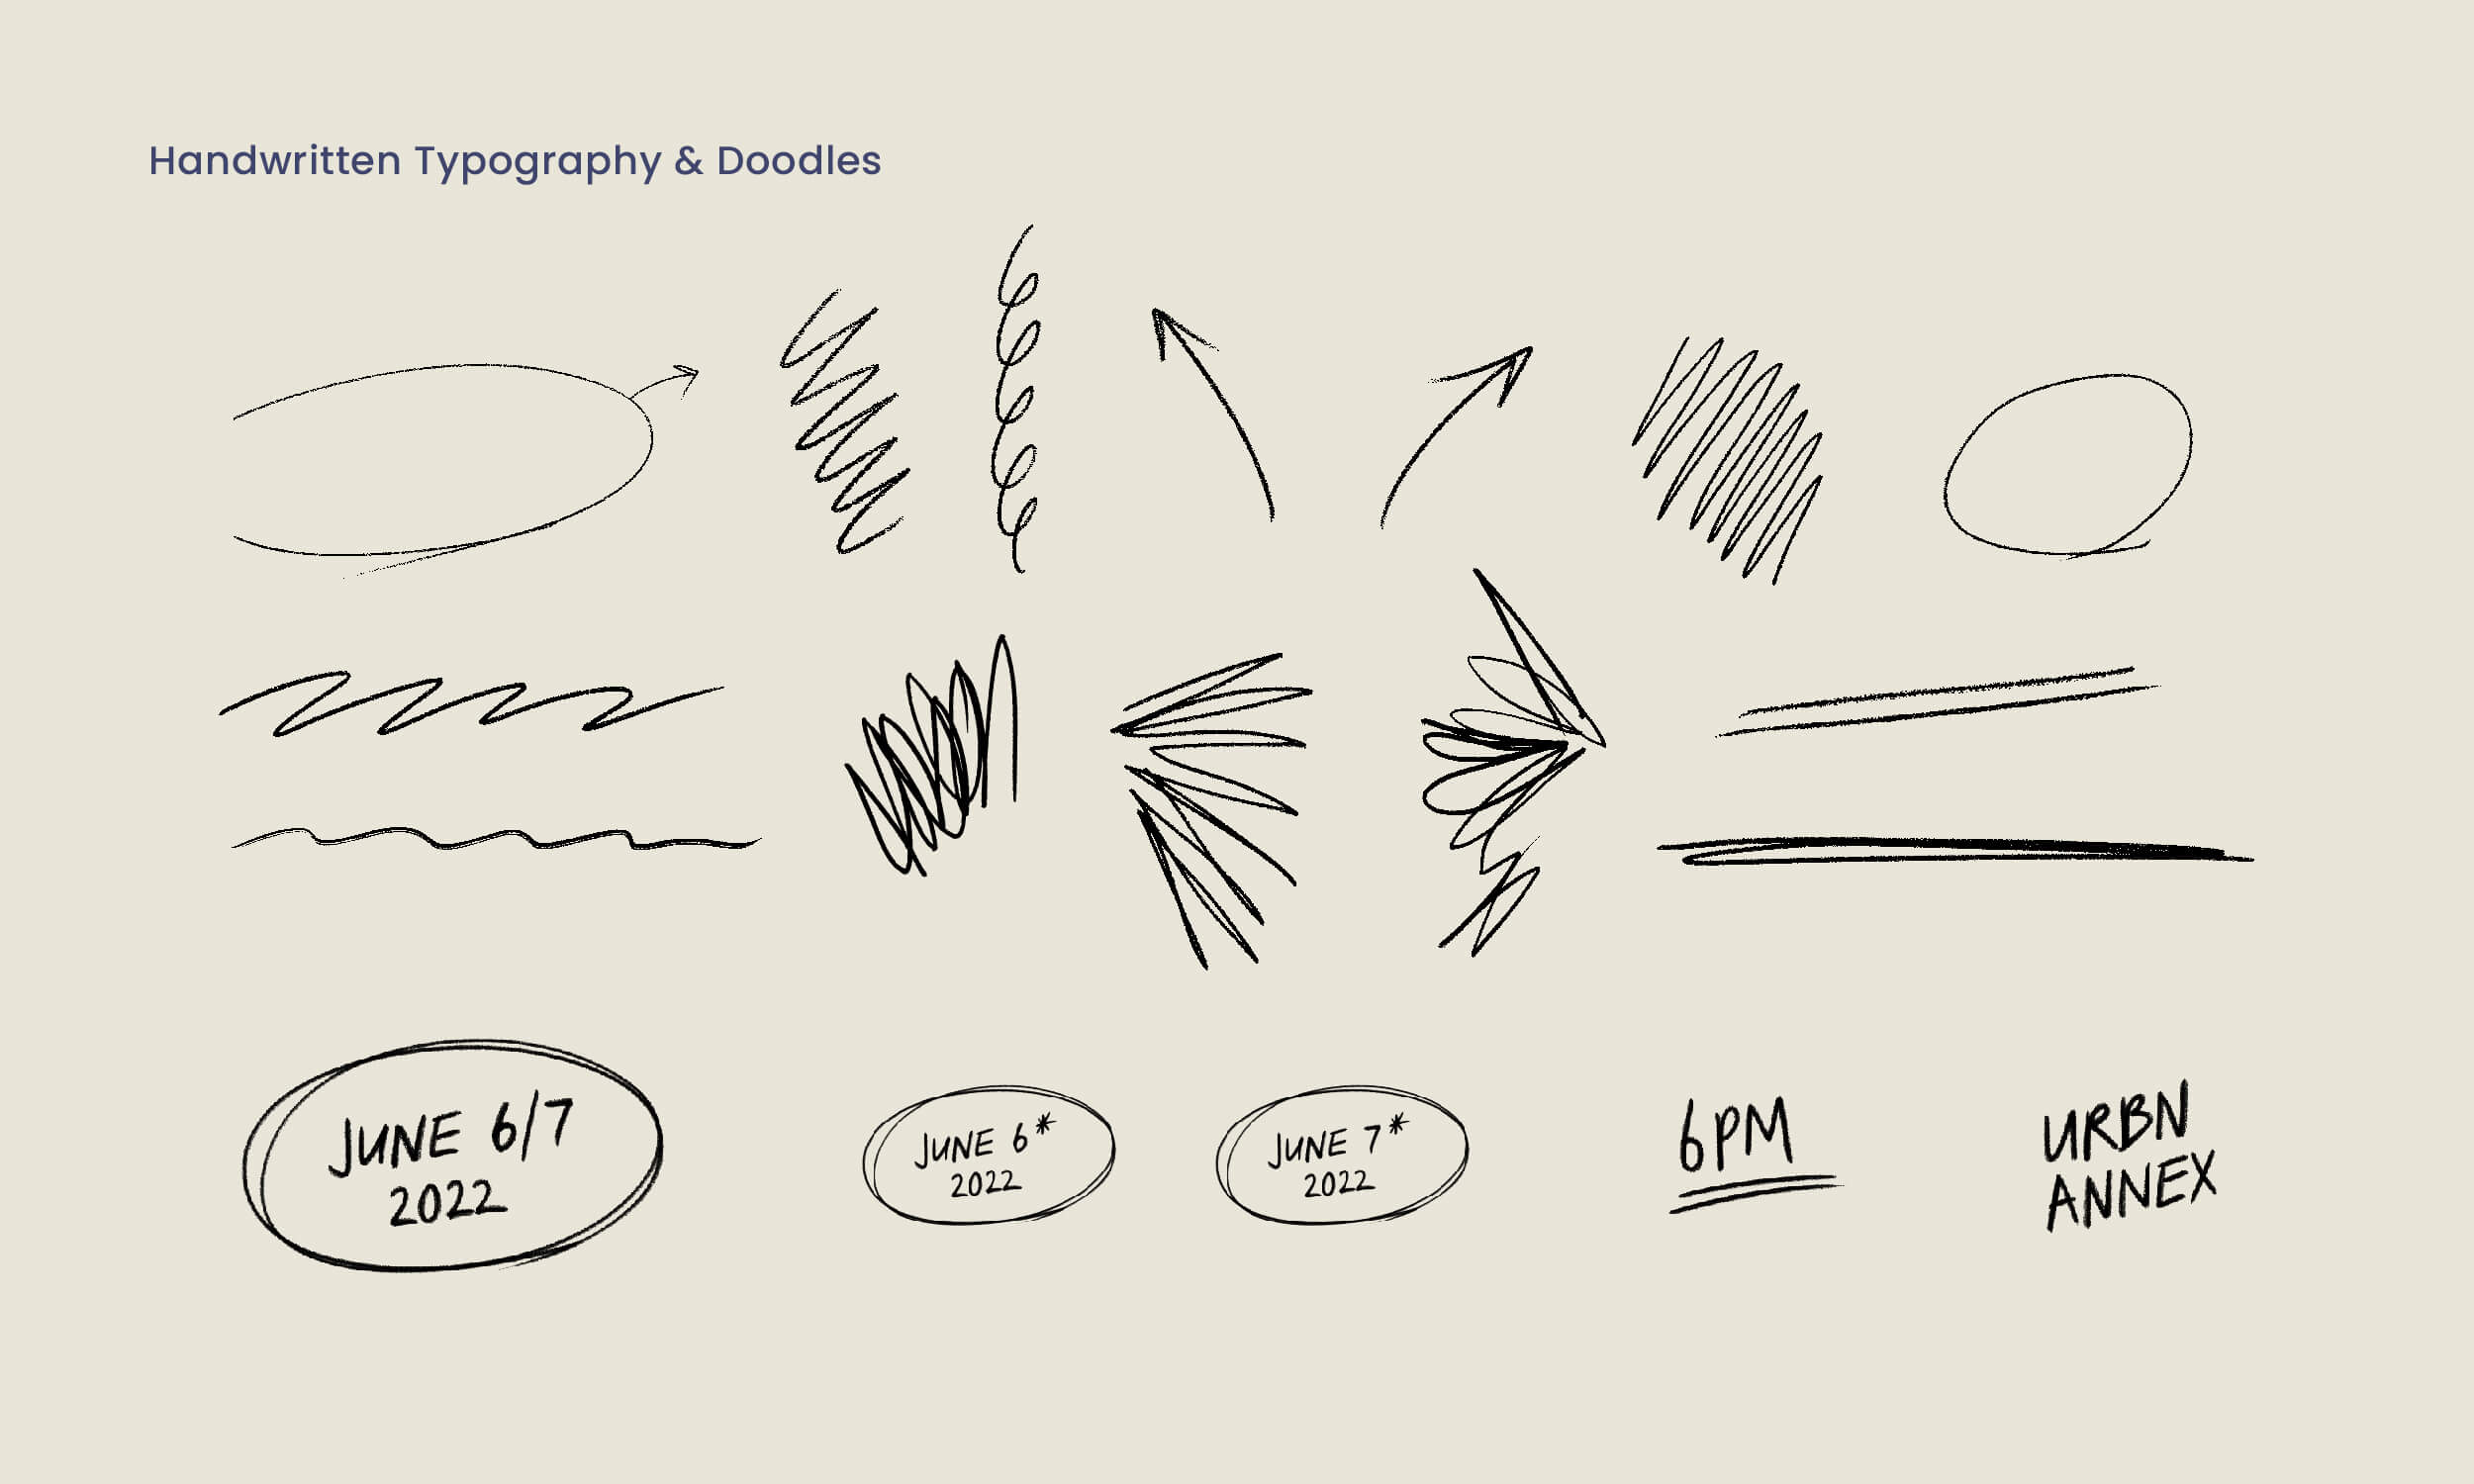 Handwritten Typography & Doodles
JUNE 6/7
2022
JUNE 6*
2022
JUNE 7*
2022
6PM
URBN
ANNEX